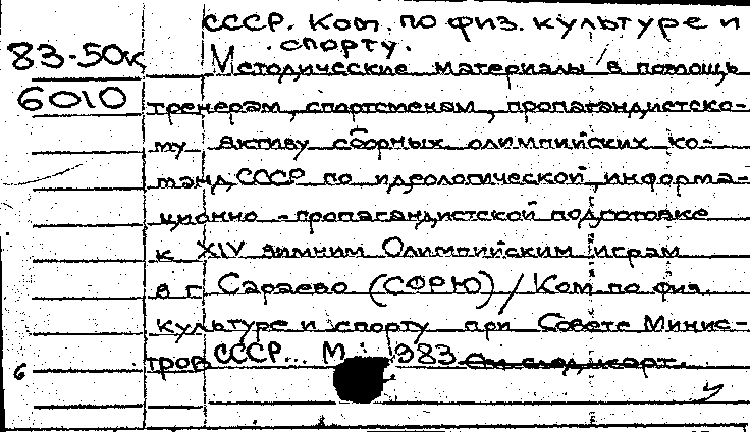 СССР. Ком. по физ. культуре и
спорту.
83-50к
Методические материалы в помощь
6010
тренерам, спортсменам, пропагандистско-
му активу сборных олимпийских ко-
манд СССР по идеологической, информа-
ционно-пропагандистской подготовке
к XIV зимним Олимпийским играм
в г. Сараево (СФРЮ) / Ком. по физ.
культуре и спорту при Совете Минис-
тров СССР... М., 1983 См. след. карт.
6